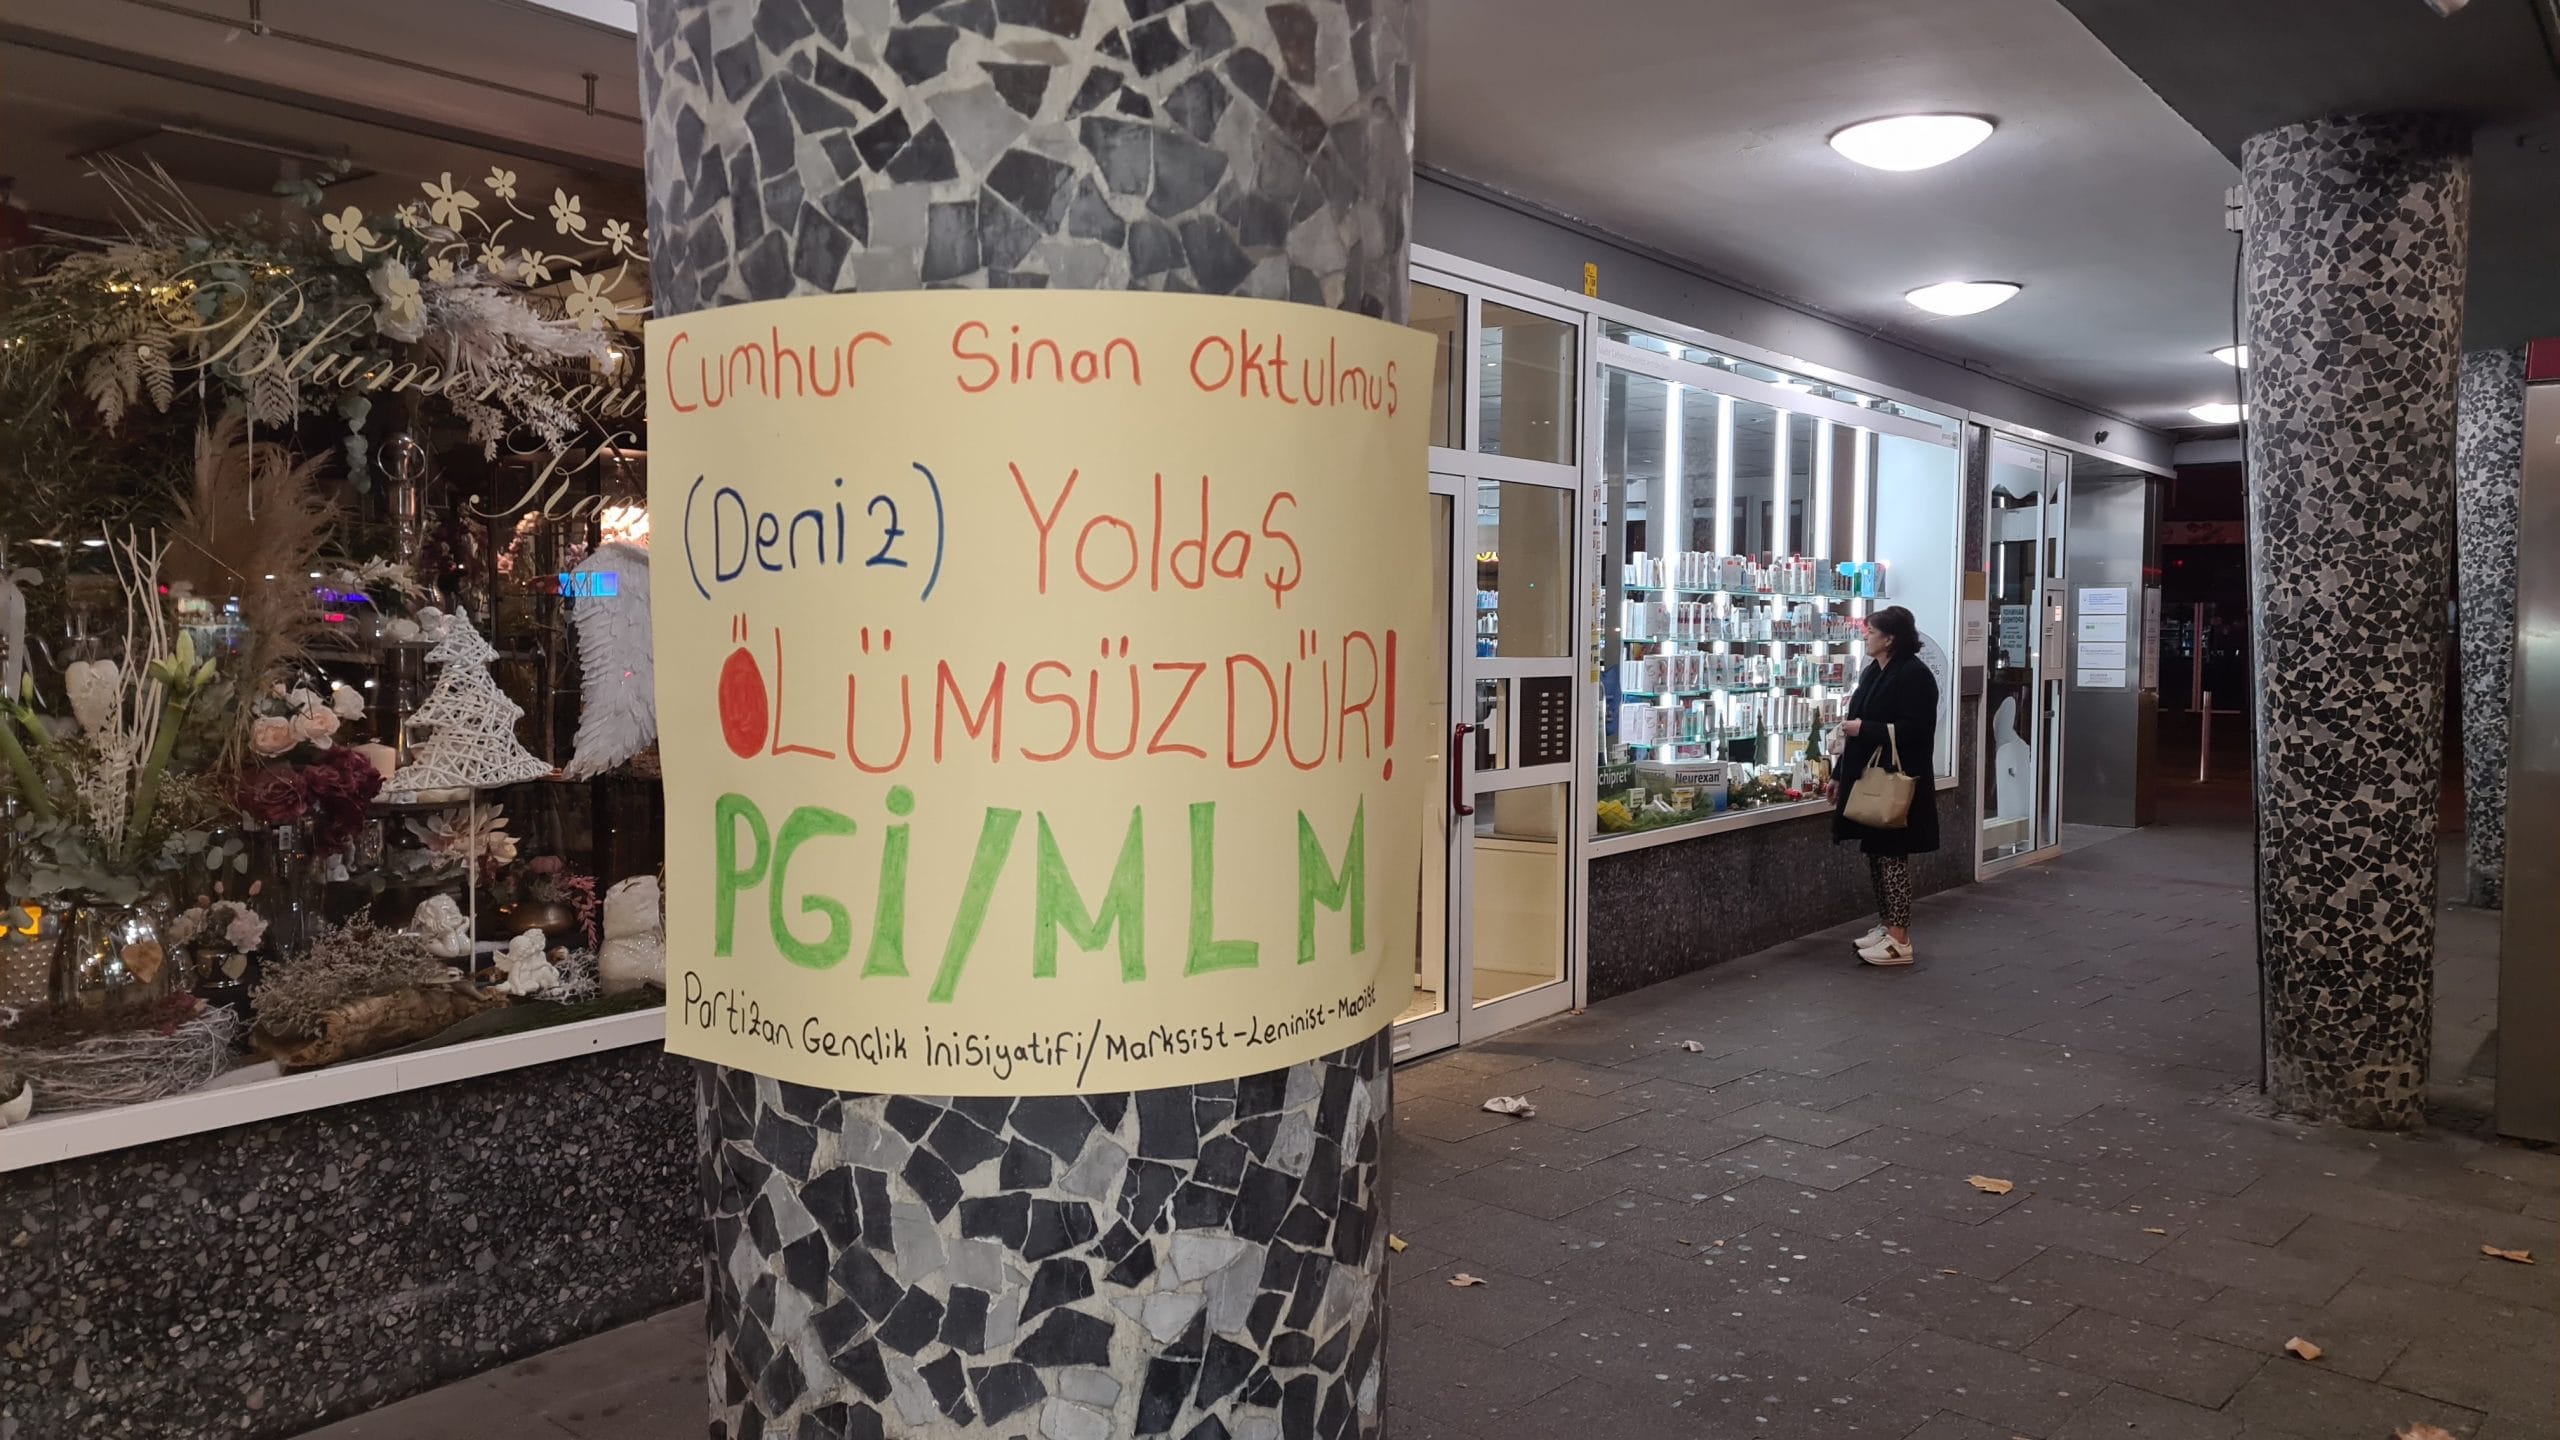 Cumhur Sinan Oktulmuş
(Deniz) Yoldaş
ÖLÜMSÜZDÜR!
PGİ/MLM
Partizan Gençlik İnisiyatifi/Marksist-Leninist-Maoist
Neurexan
1